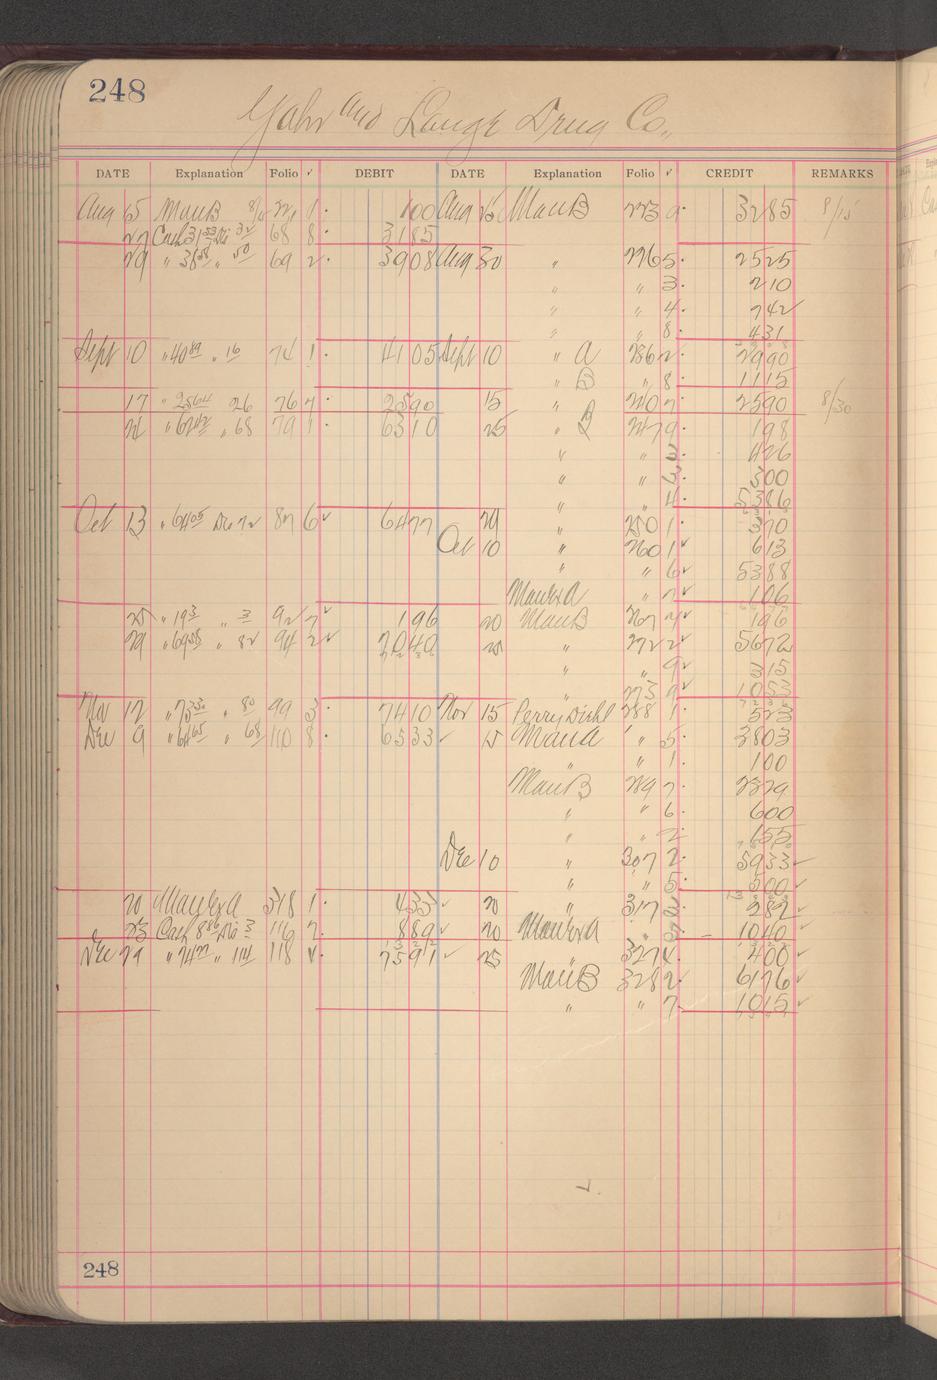 248
Yahr and Lange Drug Co.,
DATE Explanation Folio ✓ DEBIT DATE Explanation Folio ✓ CREDIT REMARKS
Aug 15 ManB 1. 100 Aug 15 ManB 273 9. 3285 8/15
27 Cash 68 8. 3185
29 " 38 58 " 50 69 2. 3908 Aug 30 " 276 5. 2525
" " 3. 210
" " 4. 742
" " 8. 431
Sept 10 " 40 89 " 16 74 1. 4105 Sept 10 " A 286 2. 2990
" B " 8. 1115
17 " 25 64 26 76 7. 2590 15 " 7. 2590 8/30
" 62 42 " 68 79 1. 6310 25 " B 9. 198
" " 426
" " 3. 300
" 4. 5386
Oct 13 " 64 05 Dis 72 87 6✓ 6477 29 " 250 1. 370
Oct 10 " 260 1✓ 613
" " 6✓ 5388
" 7✓ 106
25 " 19 3 " 3 92 7✓ 196 20 ManB 267 196
29 " 69 58 " 82 94 2✓ 7040 25 " 272 2✓ 5672
" " 9✓ 315
" 273 9✓ 1053
Nov 12 " 73 30 " 80 99 3. 7410 Nov 15 Perry Diehl 288 1. 523
Dec 9 " 64 65 " 68 110 8. 6533 ✓ 15 ManA " 5. 3803
" " 1. 100
ManB 289 7. 2379
" " 6. 600
" " 2. 155
Dec 10 " 307 2. 5933 ✓
" " 5. 500 ✓
20 318 1. 433 ✓ 20 " 317 282 ✓
23 Cash 8 86 Dis 3 116 7. 889 ✓ 20 " 1040 ✓
Dec 29 " 74 77 " 114 118 7591 ✓ 25 " 327 400 ✓
ManB 328 2✓ 6176 ✓
" " 7. 1015 ✓
248